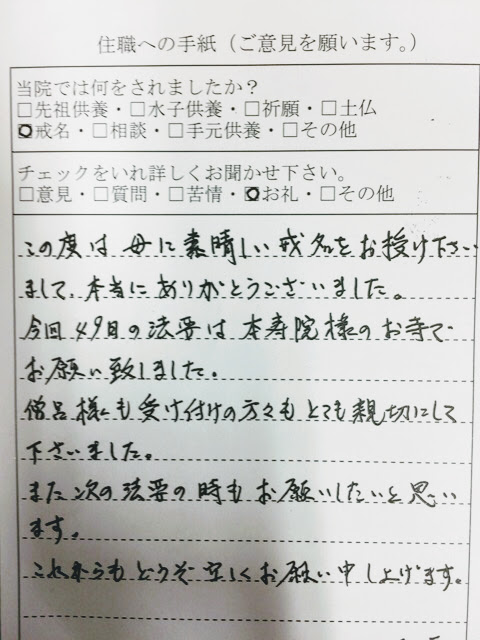 住職への手紙（ご意見を願います。）
当院では何をされましたか？
□先祖供養・□水子供養・□祈願・□土仏
□戒名・□相談・□手元供養・□その他
チェックをいれ詳しくお聞かせ下さい。
□意見・□質問・□苦情・□お礼・□その他
この度は母に素晴しい戒名をお授け下さい
まして、本当にありがとうございました。
今回49日の法要は本寿院様のお寺で
お願い致しました。
僧呂様にも受け付けの方々もとても親切にして
下さいました。
また次の法要の時もお願いしたいと思い
ます。
これからもどうぞ宜しくお願い申し上げます。